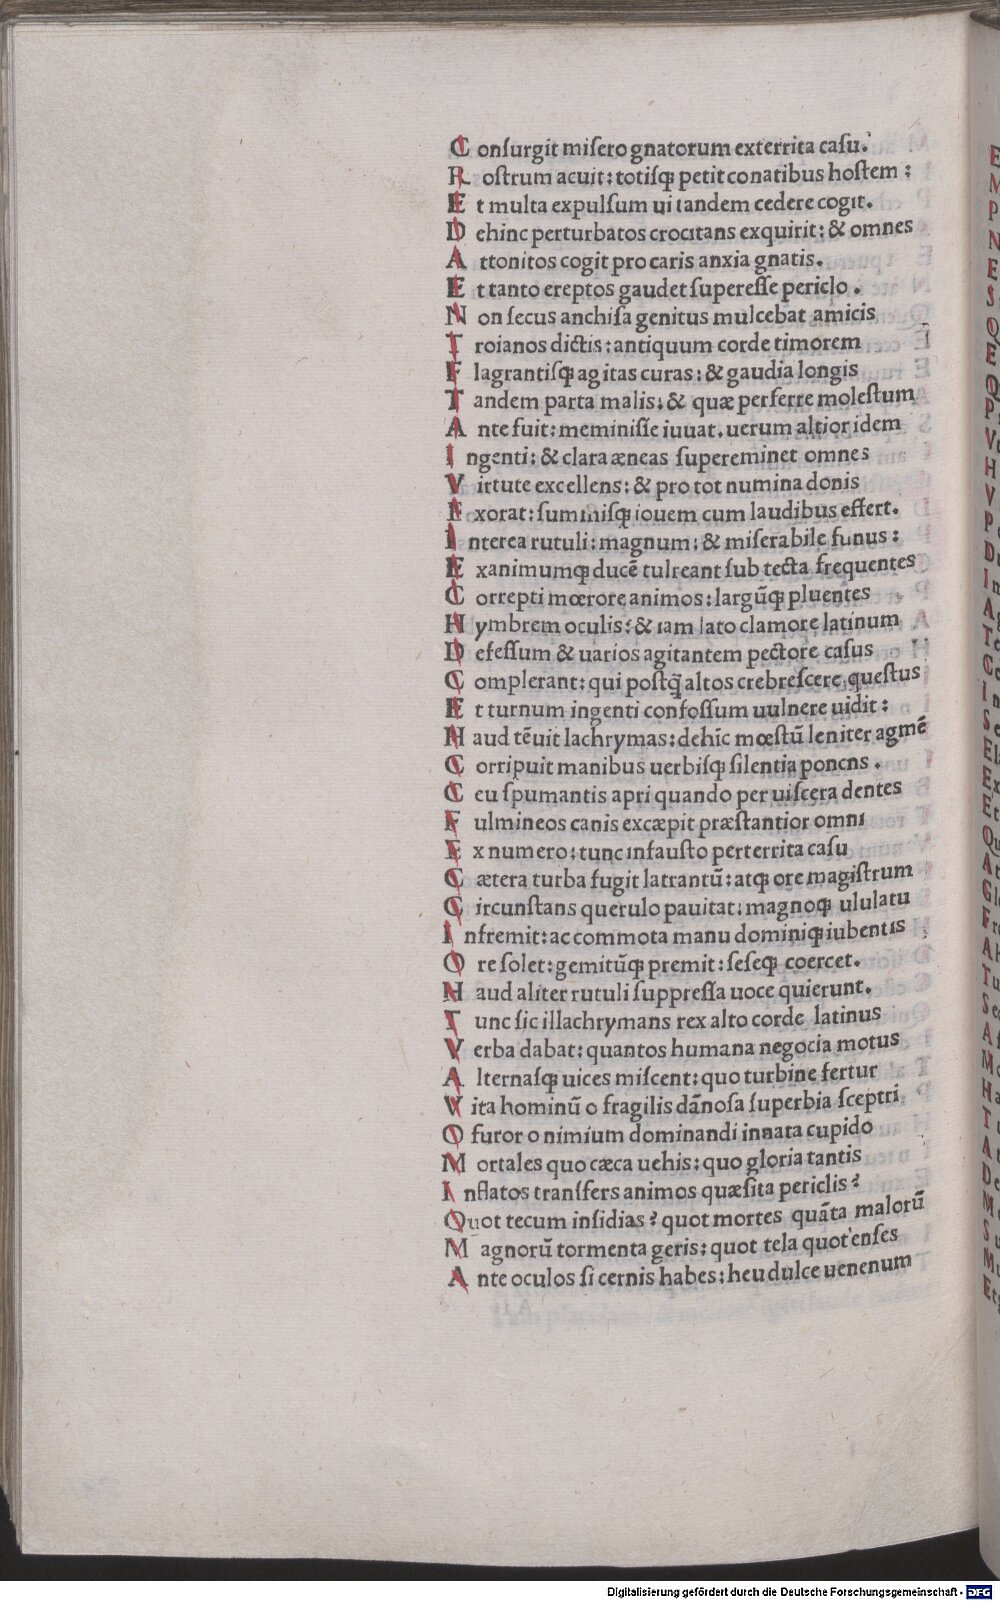 C onſurgit miſero gnatorum exterrita caſu.
R oſtrum acuit: totiſqȝ petit conatibus hoſtem :
E t multa expulſum ui tandem cedere cogit.
D ehinc perturbatos crocitans exquirit: & omnes
A ttonitos cogit pro caris anxia gnatis.
E t tanto ereptos gaudet ſupereſſe periclo .
N on ſecus anchiſa genitus mulcebat amicis
T roianos dictis: antiquum corde timorem
F lagrantiſqȝ agitas curas: & gaudia longis
T andem parta malis: & quæ perferre moleſtum
A nte fuit: meminiſſe iuuat. uerum altior idem
I ngenti: & clara æneas ſupereminet omnes
V irtute excellens: & pro tot numina donis
E xorat: ſummiſqȝ iouem cum laudibus effert.
I nterea rutuli: magnum: & miſerabile funus :
E xanimumqȝ ducē tulreant ſub tecta frequentes
C orrepti mœrore animos: largūqȝ pluentes
H ymbrem oculis: & iam lato clamore latinum
D efeſſum & uarios agitantem pectore caſus
C omplerant: qui poſtq̄ altos crebreſcere queſtus
E t turnum ingenti confoſſum uulnere uidit :
H aud tēuit lachrymas: dehīc mœſtū leniter agmē
C orripuit manibus uerbiſqȝ ſilentia ponens .
C eu ſpumantis apri quando per uiſcera dentes
F ulmineos canis excæpit præſtantior omni
E x numero: tunc infauſto perterrita caſu
C ætera turba fugit latrantū: atqȝ ore magiſtrum
C ircunſtans querulo pauitat: magnoqȝ ululatu
I nfremit: ac commota manu dominiqȝ iubentis
O re ſolet: gemitūqȝ premit: ſeſeqȝ coercet.
H aud aliter rutuli ſuppreſſa uoce quierunt.
T unc ſic illachrymans rex alto corde latinus
V erba dabat: quantos humana negocia motus
A lternaſqȝ uices miſcent: quo turbine fertur
V ita hominū o fragilis dānoſa ſuperbia ſceptri
O furor o nimium dominandi innata cupido
M ortales quo cæca uehis: quo gloria tantis
I nflatos tranſfers animos quæſita periclis?
Quot tecum inſidias? quot mortes quāta malorū
M agnorū tormenta geris: quot tela quot enſes
A nte oculos ſi cernis habes: heu dulce uenenum
Digitalisierung gefördert durch die Deutsche Forschungsgemeinschaft - DFG